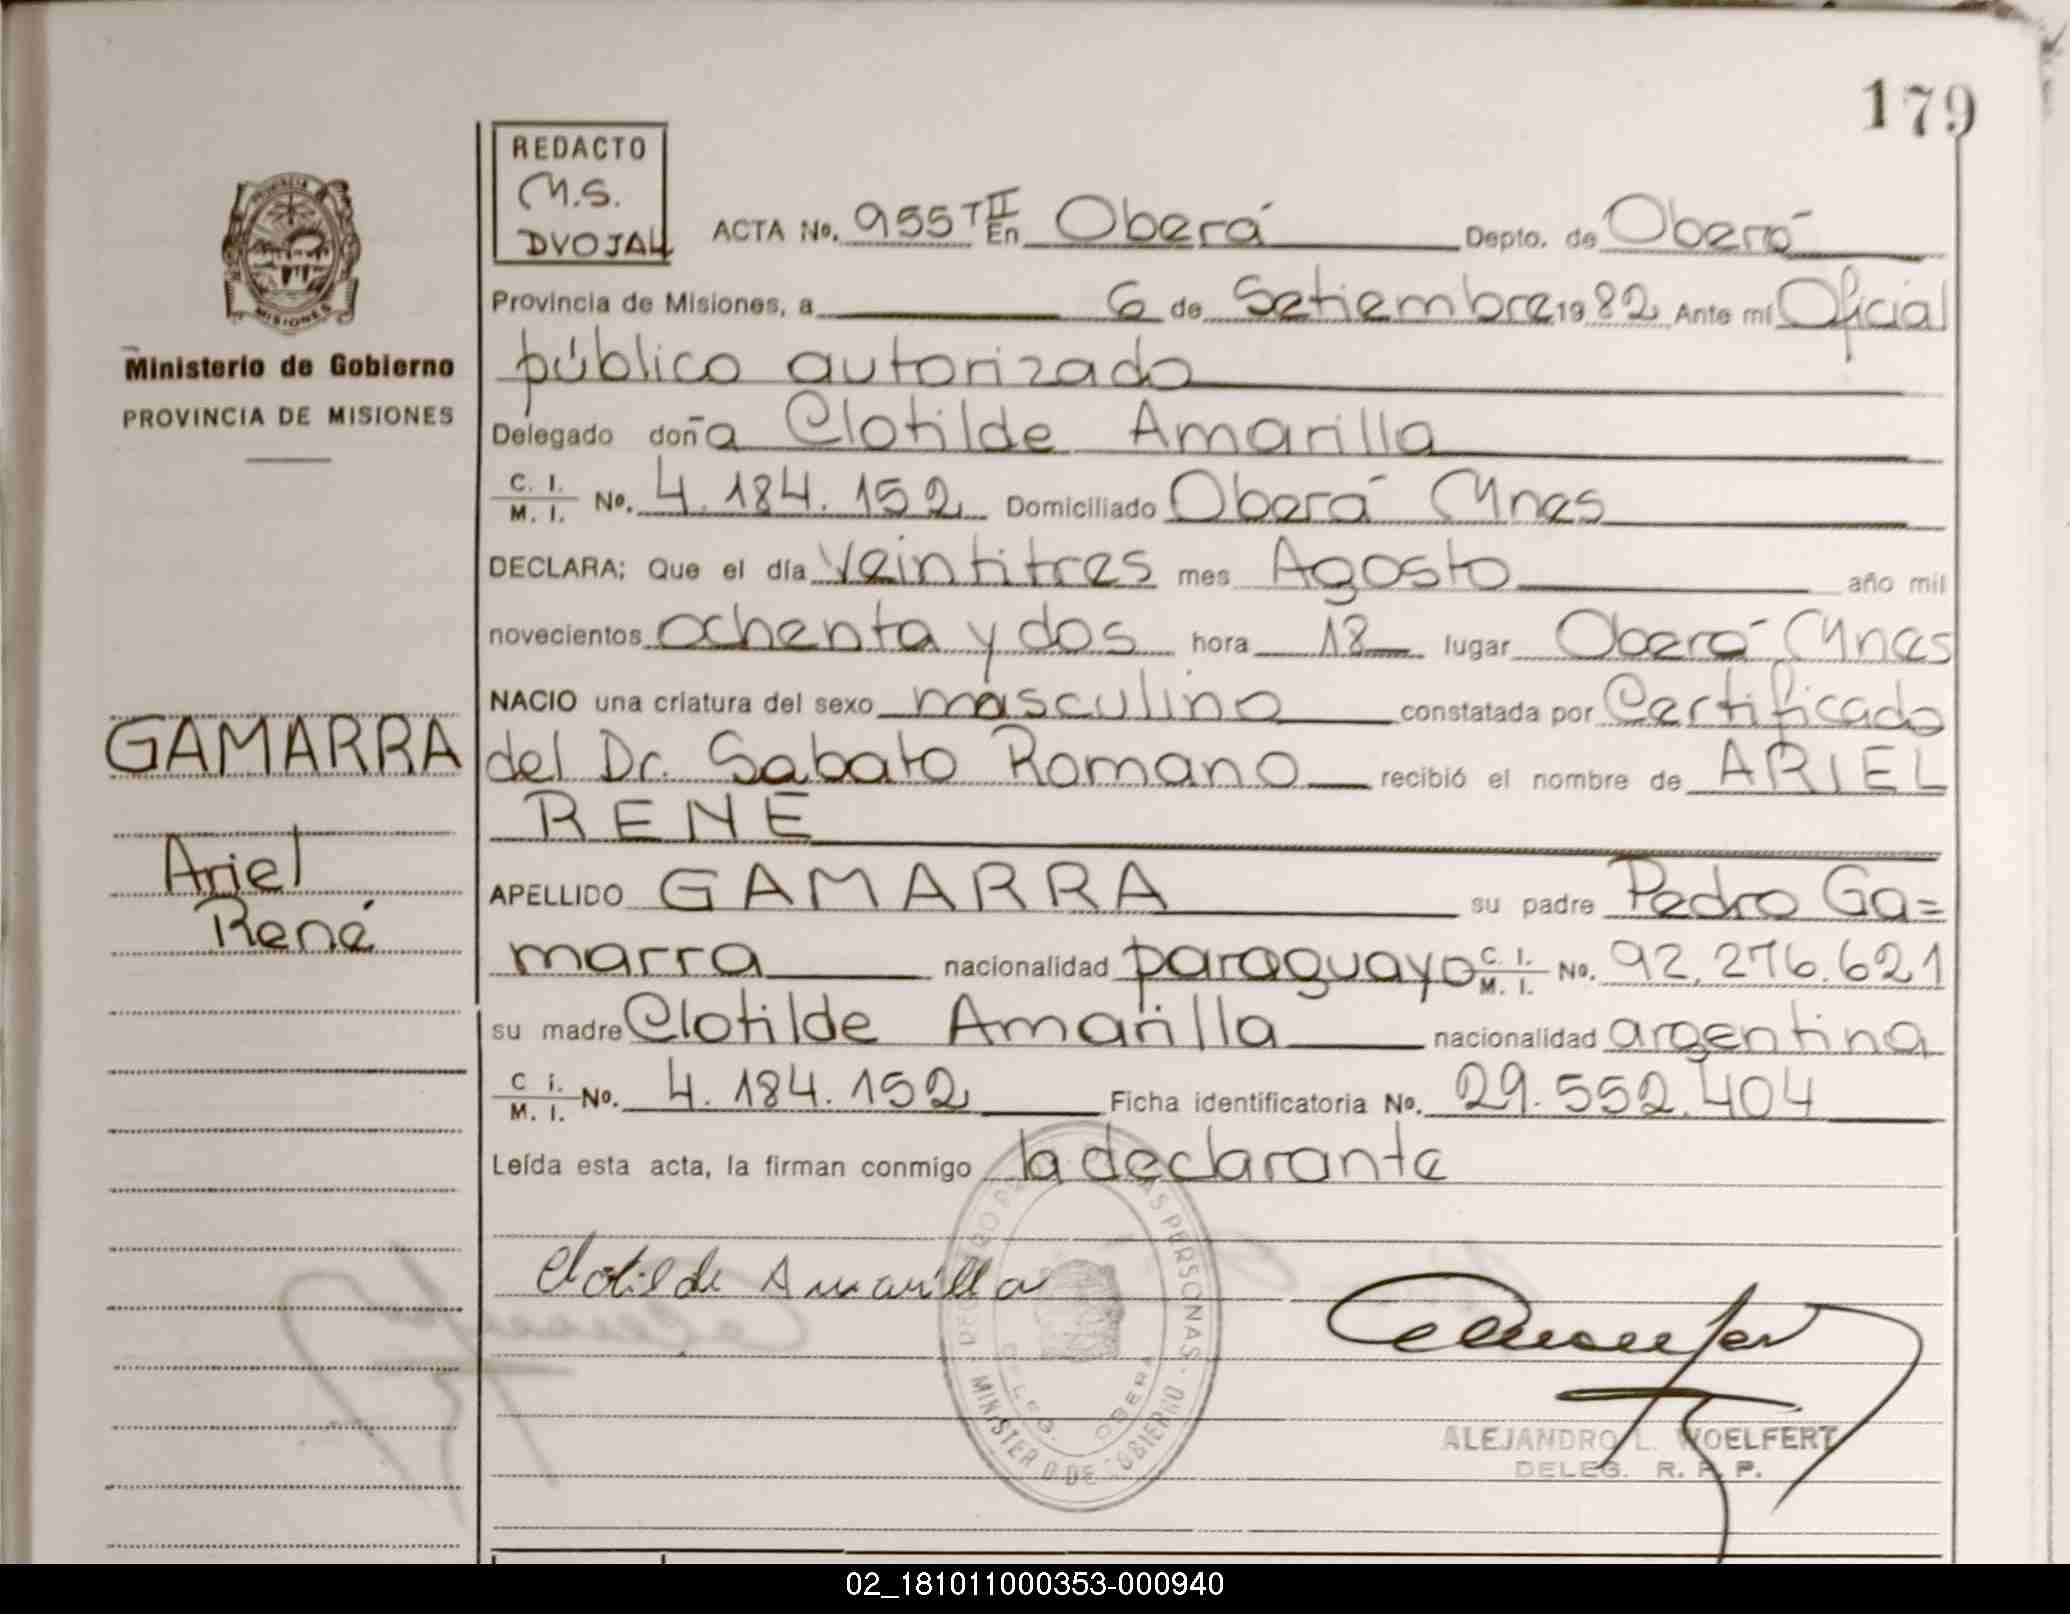 179
REDACTO
M.S.
DVOJAK
ACTA No. 955 T II En Oberá Depto. de Oberá
MISIONES
Provincia de Misiones, a 6 de Setiembre 1982 Ante mi Oficial
Ministerio de Gobierno
público autorizado
PROVINCIA DE MISIONES
Delegado doña Clotilde Amarilla
C. I. M. I. No. 4.184.152 Domiciliado Oberá Mnes
DECLARA; Que el día veintitres mes Agosto año mil
novecientos ochenta y dos hora 18 lugar Oberá Mnes
NACIO una criatura del sexo masculino constatada por Certificado
GAMARRA
del Dr. Sabato Romano recibió el nombre de ARIEL
RENE
Ariel
René
APELLIDO GAMARRA su padre Pedro Ga=
marra nacionalidad paraguayo C. I. M. I. No. 92.276.621
su madre Clotilde Amarilla nacionalidad argentina
C i. M. I. No. 4.184.152 Ficha identificatoria No. 29.552.404
Leída esta acta, la firman conmigo la declarante
Clotilde Amarilla
PERSONAS
MINISTERIO DE GOBIERNO
DELEG. OBERA
ALEJANDRO L. WOELFERT
DELEG. R. P. P.
02_181011000353-000940